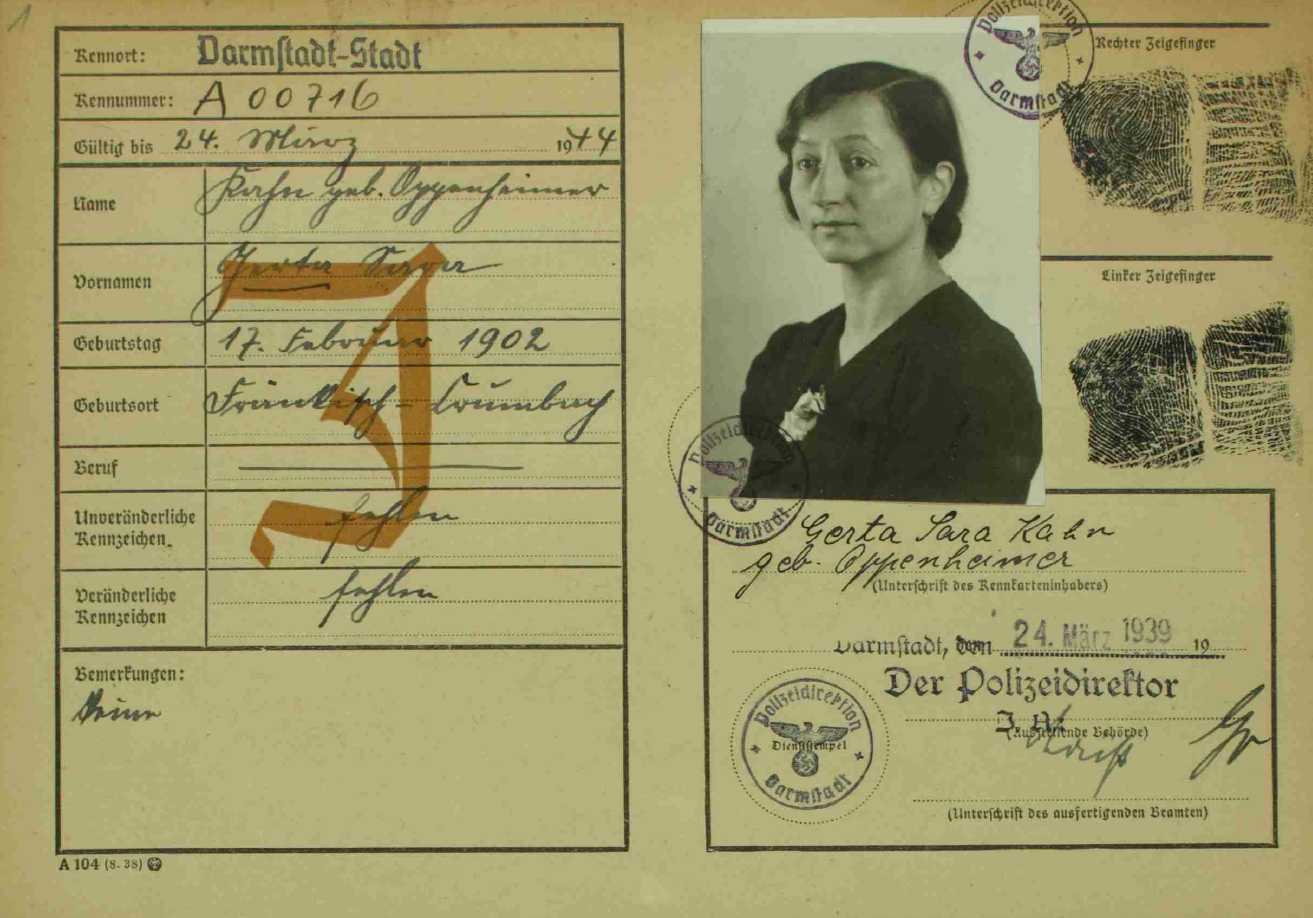 1
Kennort: Darmstadt-Stadt
Kennummer: A 00716
Gültig bis 24. März 1944
Name Kahn geb. Oppenheimer
Vornamen Gerta Sara
Geburtstag 17. Februar 1902
Geburtsort Fränkisch-Crumbach
Beruf
Unveränderliche Kennzeichen fehlen
Veränderliche Kennzeichen fehlen
Bemerkungen:
Keine
A 104 (8. 38)
J
Polizeidirektion Darmstadt
Rechter Zeigefinger
Linker Zeigefinger
Polizeidirektion Darmstadt
Gerta Sara Kahn
geb. Oppenheimer
(Unterschrift des Kennkarteninhabers)
Darmstadt, den 24. März 1939 19
Der Polizeidirektor
Polizeidirektion Darmstadt
Dienststempel
(Ausstellende Behörde)
(Unterschrift des ausfertigenden Beamten)